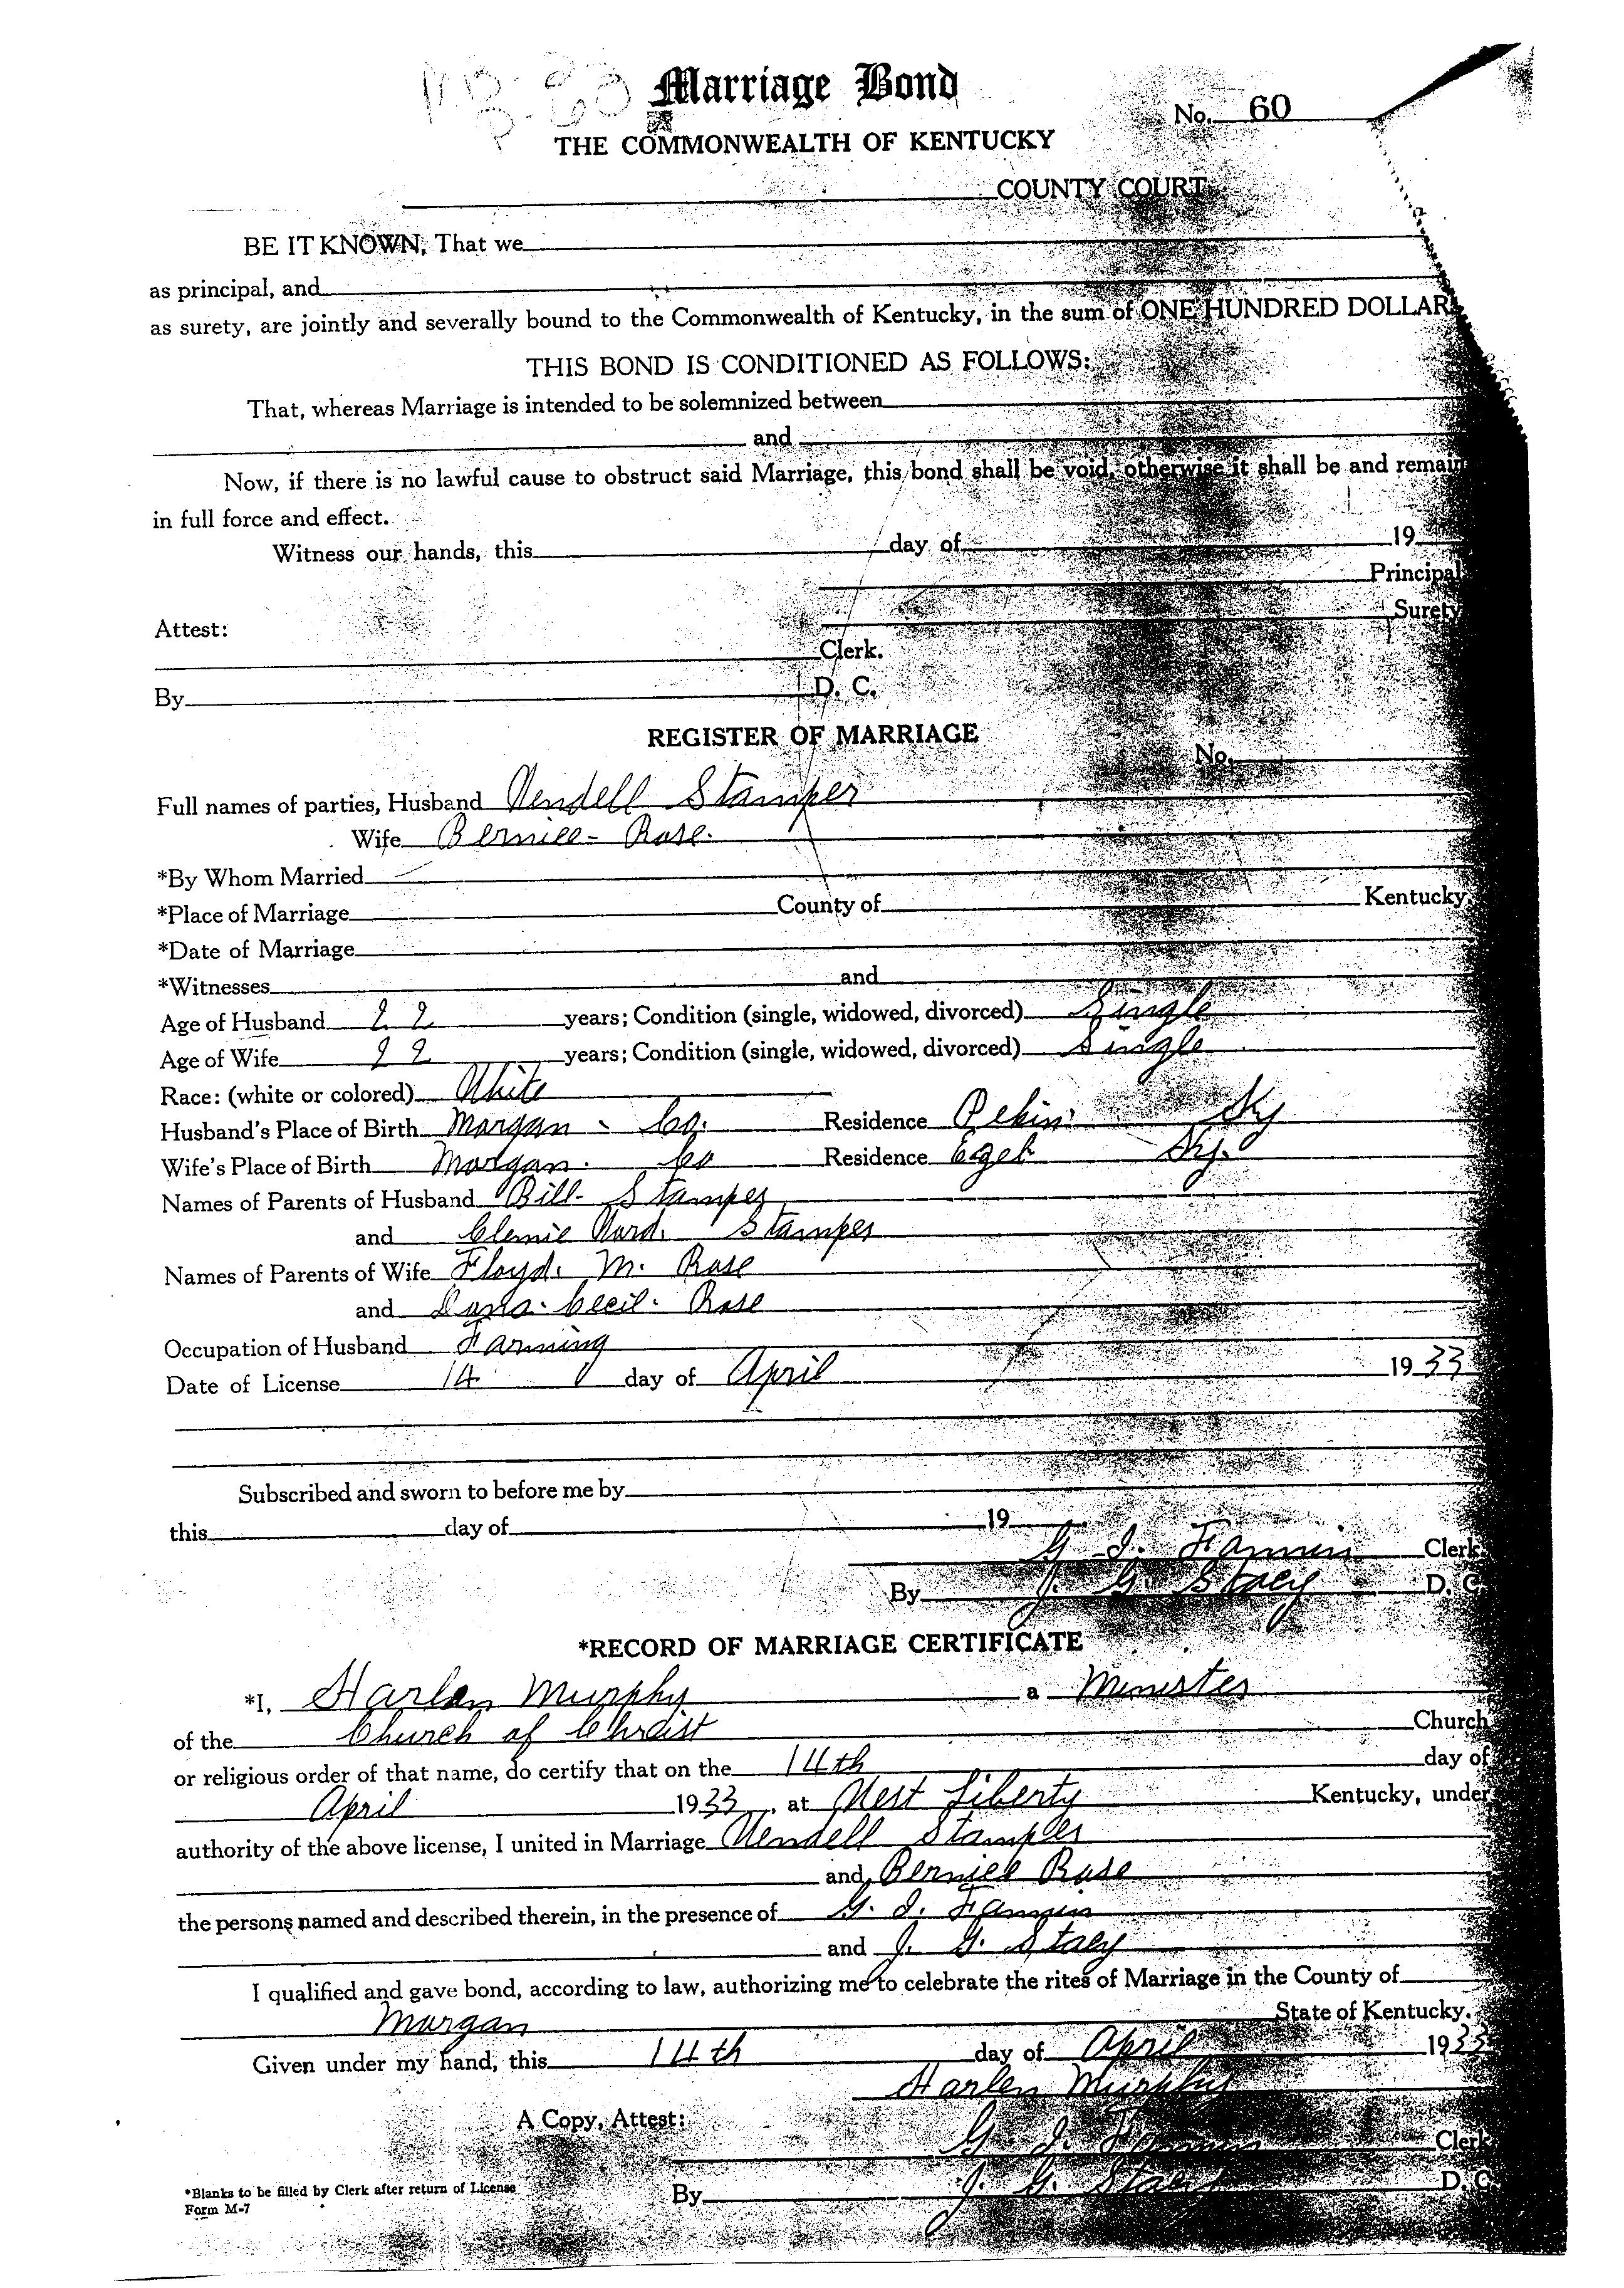 Marriage Bond
No. 60
THE COMMONWEALTH OF KENTUCKY
COUNTY COURT
BE IT KNOWN, That we
as principal, and
as surety, are jointly and severally bound to the Commonwealth of Kentucky, in the sum of ONE HUNDRED DOLLAR
THIS BOND IS CONDITIONED AS FOLLOWS:
That, whereas Marriage is intended to be solemnized between
and
Now, if there is no lawful cause to obstruct said Marriage, this bond shall be void, otherwise it shall be and remain
in full force and effect.
Witness our hands, this day of 19
Principal
Surety
Attest:
Clerk.
By D. C.
REGISTER OF MARRIAGE
No.
Full names of parties, Husband Wendell Stamper
Wife Bernice - Rose.
*By Whom Married
*Place of Marriage County of Kentucky.
*Date of Marriage
*Witnesses and
Age of Husband 22 years; Condition (single, widowed, divorced) Single
Age of Wife 22 years; Condition (single, widowed, divorced) Single
Race: (white or colored) White
Husband's Place of Birth Morgan - Co. Residence Pekin Ky
Wife's Place of Birth Morgan. Co Residence Ezel Ky.
Names of Parents of Husband Bill - Stamper
and Clemie Ward. Stamper
Names of Parents of Wife Floyd. M. Rose
and Cecil. Rose
Occupation of Husband Farming
Date of License 14 day of April 1933
Subscribed and sworn to before me by
this day of 19
G. I. Fannin Clerk.
By J. G. Stacy D. C.
*RECORD OF MARRIAGE CERTIFICATE
*I, Harlen Murphy a Minister
of the Church of Christ Church
or religious order of that name, do certify that on the 14th day of
April 1933, at West Liberty Kentucky, under
authority of the above license, I united in Marriage Wendell Stamper
and Bernice Rose
the persons named and described therein, in the presence of G. I. Fannin
and J. G. Stacy
I qualified and gave bond, according to law, authorizing me to celebrate the rites of Marriage in the County of
Morgan State of Kentucky.
Given under my hand, this 14th day of April 1933
Harlen Murphy
A Copy, Attest:
G. I. Fannin Clerk
By J. G. Stacy D. C.
*Blanks to be filled by Clerk after return of License
Form M-7